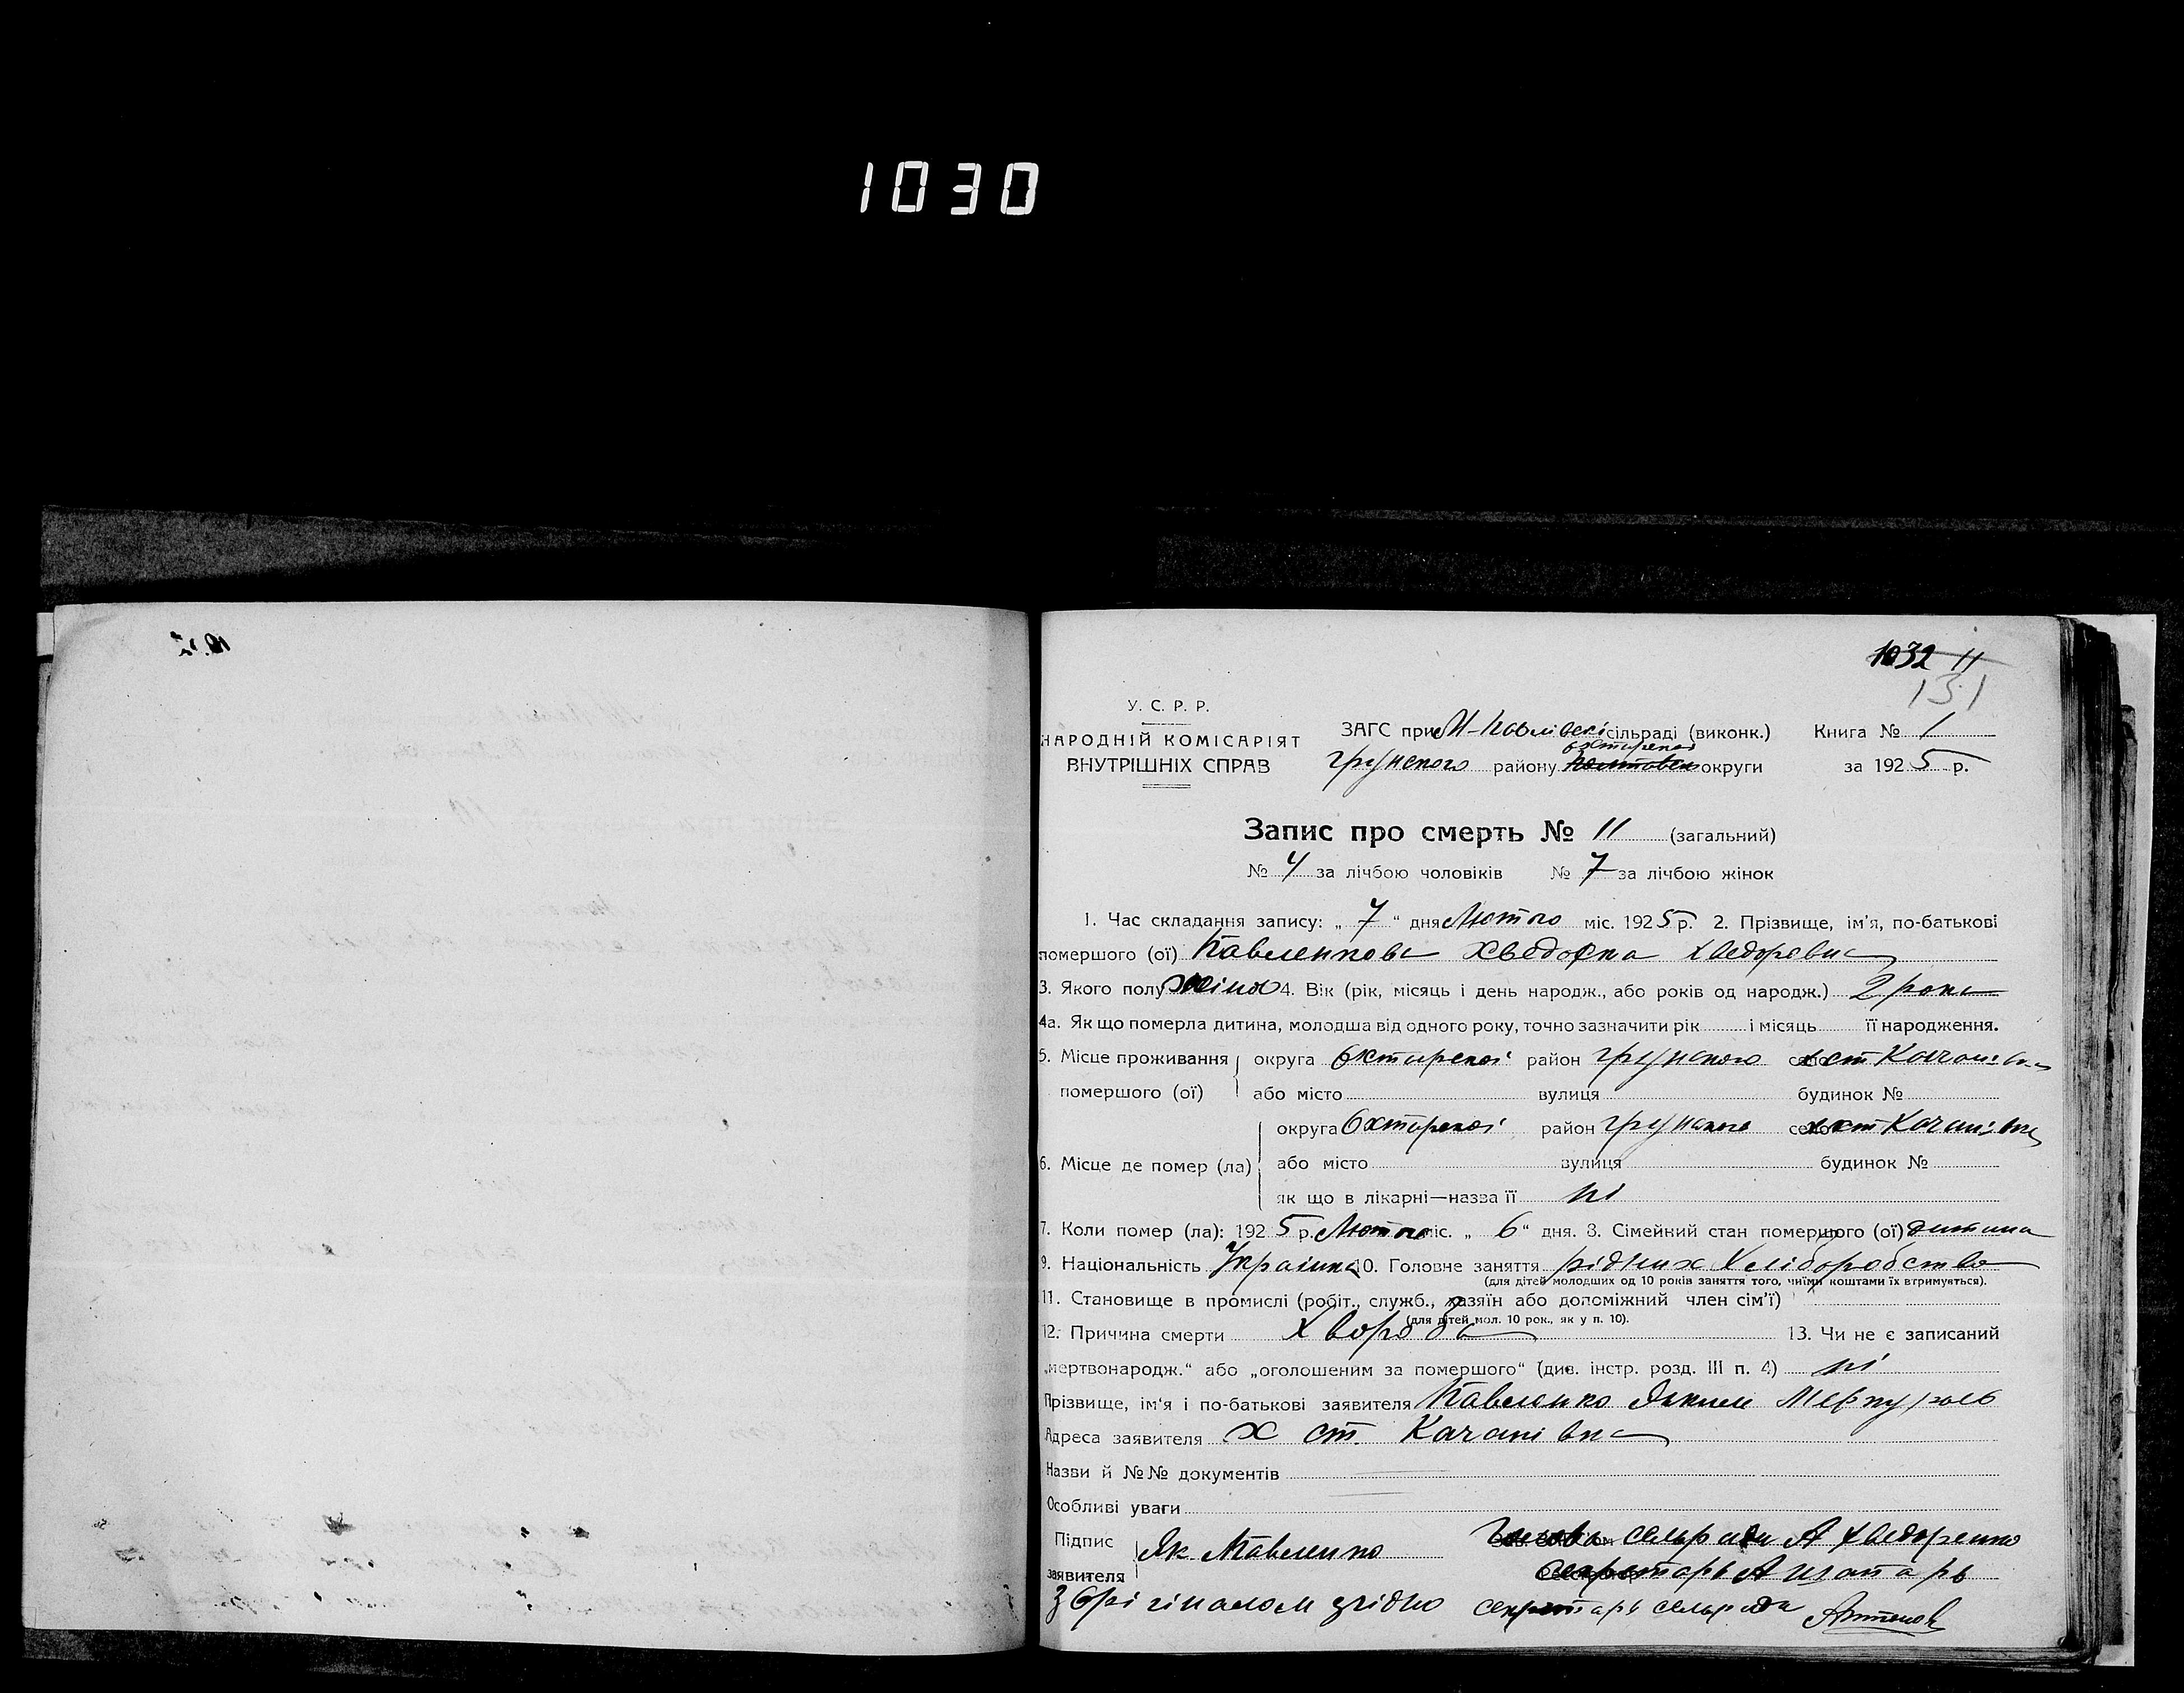 1030
1032 11
131
У. С. Р. Р.
НАРОДНІЙ КОМІСАРІЯТ
ВНУТРІШНІХ СПРАВ
ЗАГС при сільраді (виконк.) Книга № 1
грунського району охтирської округи за 1925 р.
Запис про смерть № 11 (загальний)
№ 4 за лічбою чоловіків № 7 за лічбою жінок
1. Час складання запису: „ 7 “ дня Лютого міс. 1925 р. 2. Прізвище, ім'я, по-батькові
помершого (ої) Павленкова Хведоска Хведоревна
3. Якого полу жіноч 4. Вік (рік, місяць і день народж., або років од народж.) 2 роки
4а. Як що померла дитина, молодша від одного року, точно зазначити рік і місяць її народження.
5. Місце проживання округа Охтирскої район грунского село хст Качанівка
помершого (ої) або місто вулиця будинок №
округа Охтирскої район грунского село хст Качанівка
6. Місце де помер (ла) або місто вулиця будинок №
як що в лікарні—назва її ні
7. Коли помер (ла): 1925 р. Лютого міс. „ 6 “ дня. 8. Сімейний стан помершого (ої) дитина
9. Національність Українка 10. Головне заняття рідних Хліборобство
(для дітей молодших од 10 років заняття того, чиїми коштами їх втримується).
11. Становище в промислі (робіт., служб., хазяїн або допоміжний член сім'ї)
(для дітей мол. 10 рок., як у п. 10).
12. Причина смерти Хвороба 13. Чи не є записаний
„мертвонародж.“ або „оголошеним за помершого“ (див. інстр. розд. III п. 4) ні
Прізвище, ім'я і по-батькові заявителя Павленко Яким
Адреса заявителя х ст. Качанівка
Назви й №№ документів
Особливі уваги
Підпис Як Павленко Голова сельради А Хведоренко
заявителя секретарь А
З Орігіналом згідно секретарь сельради